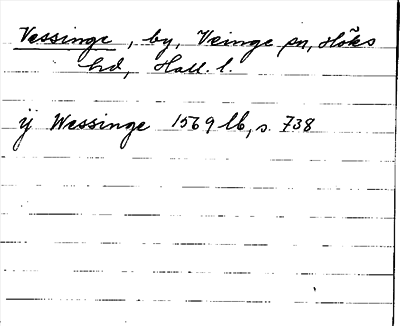 Vessinge, by, Veinge sn, Höks
hd, Hall. l.
ij Wessinge 1569 lb, s. 738